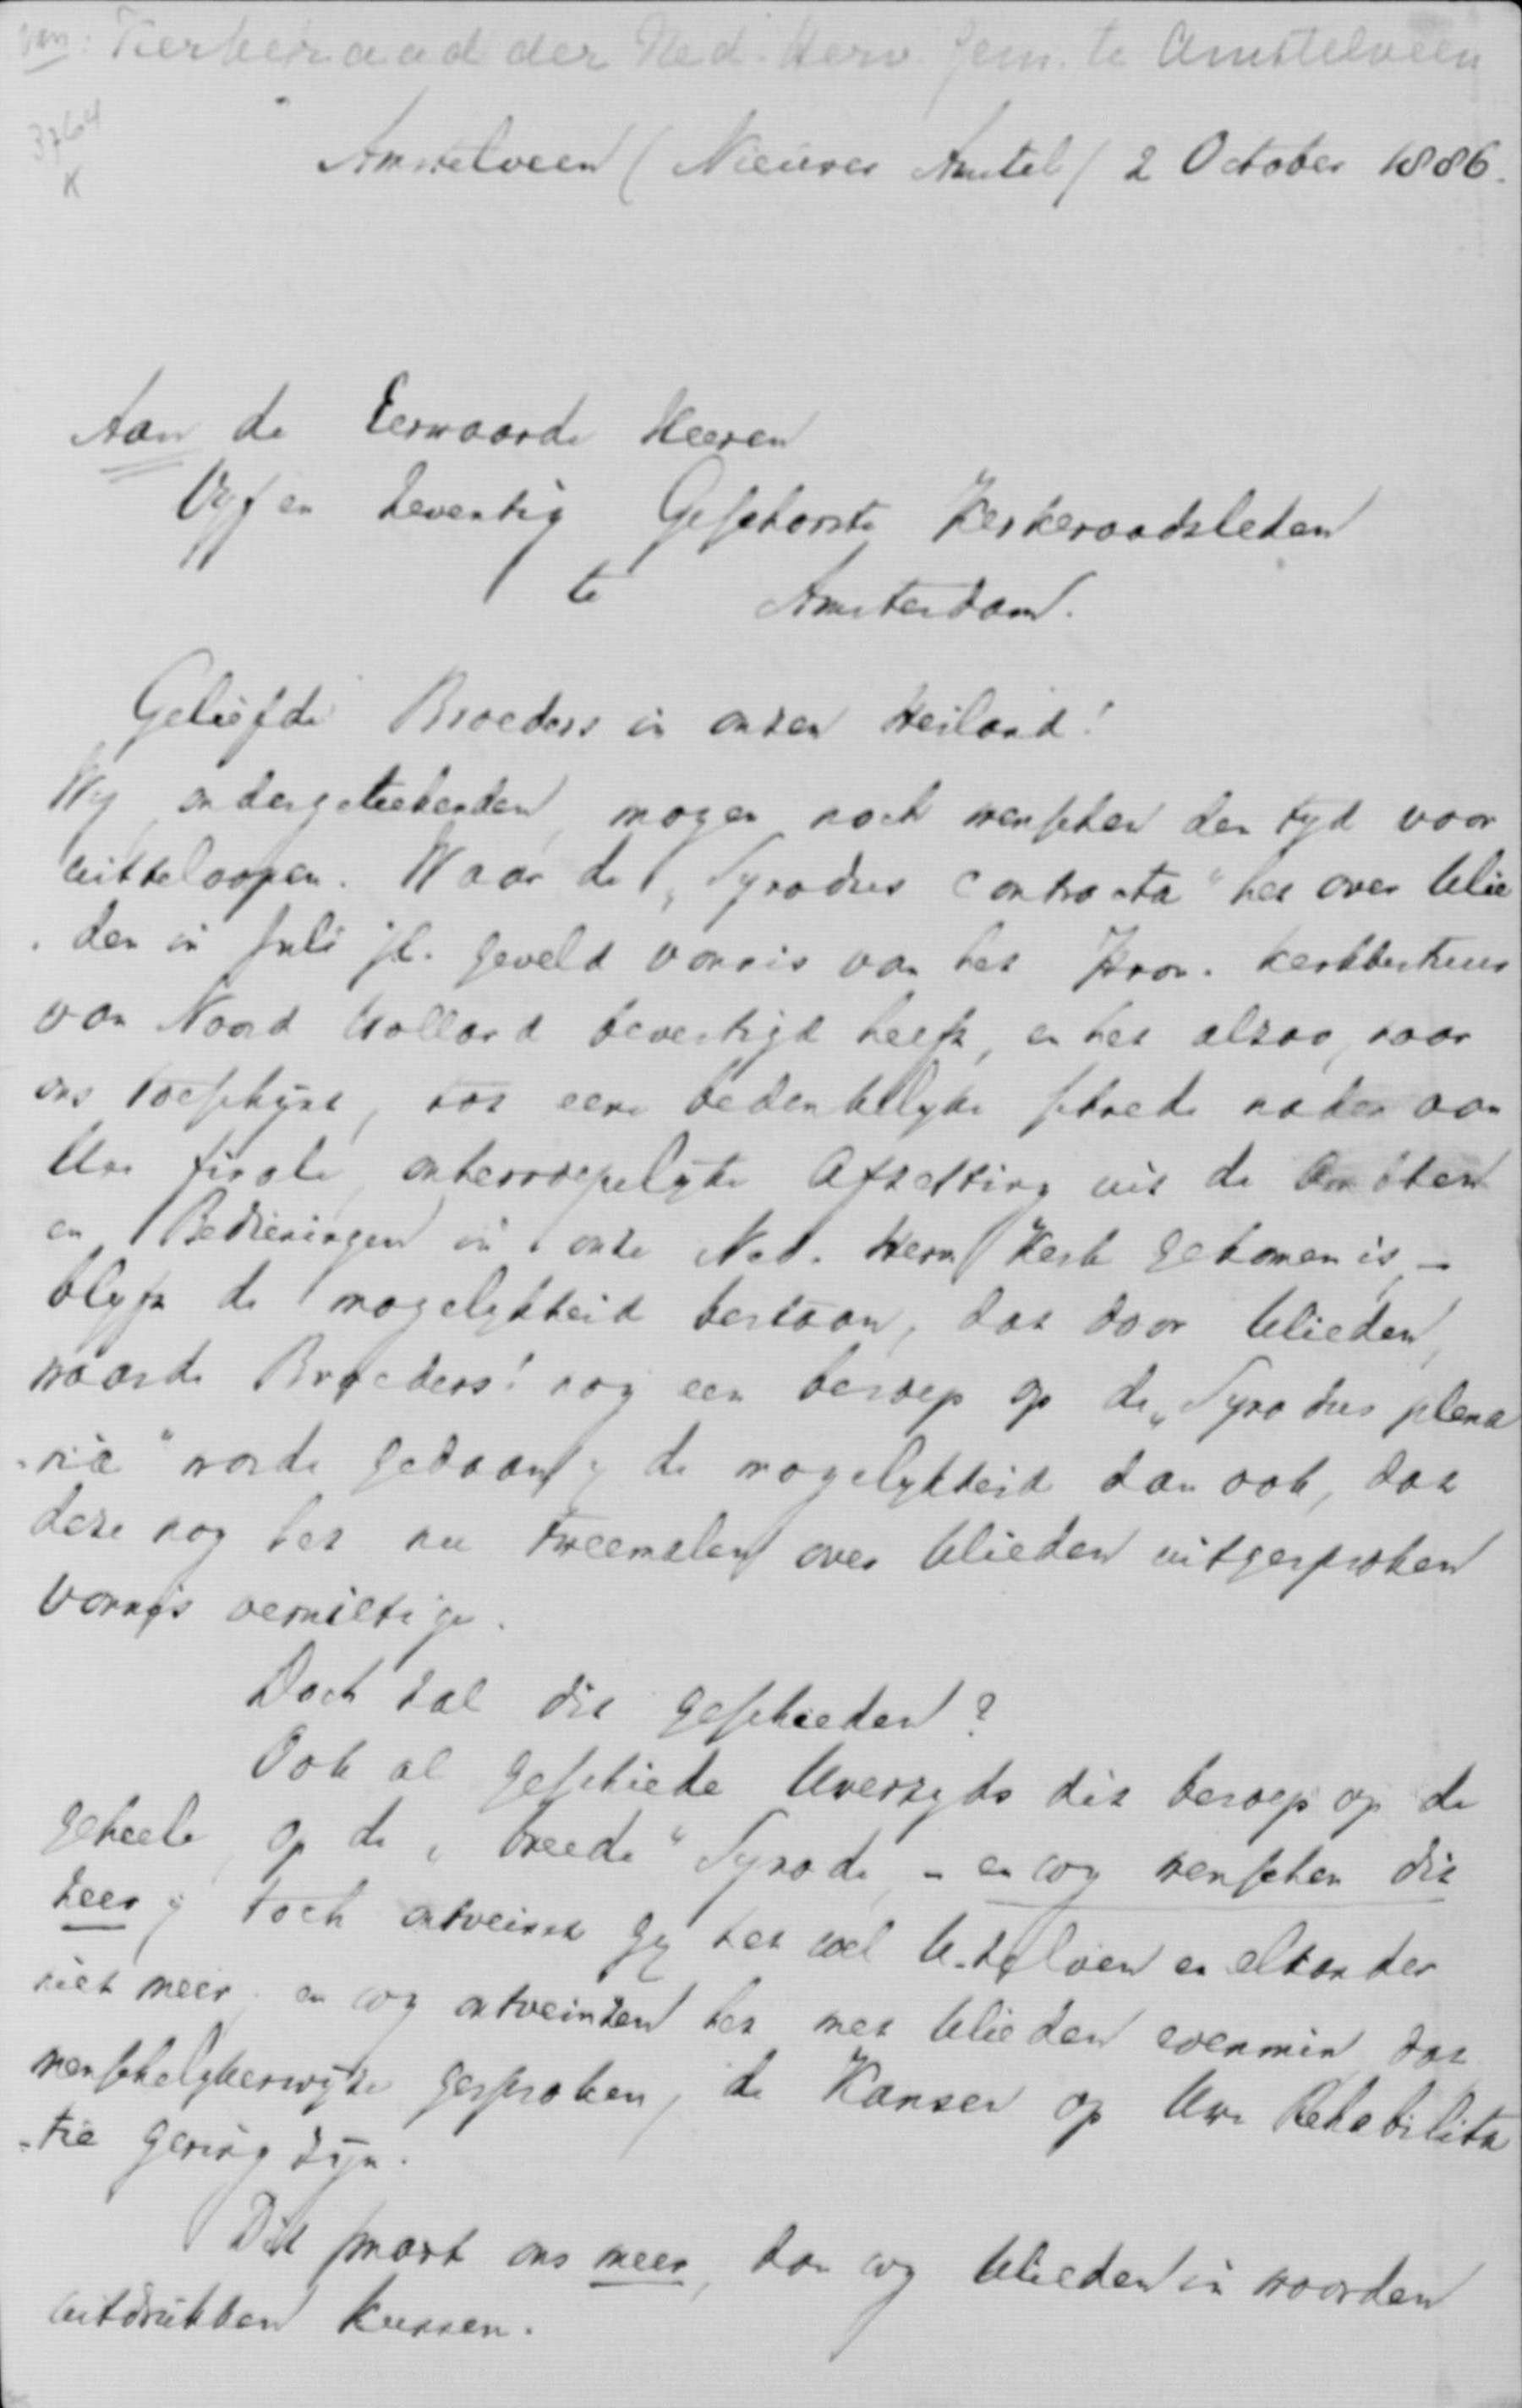 van: Kerkeraad der Ned. Herv. Gem. te Amstelveen
3764
K
Amstelveen (Nieuwer Amstel) 2 October 1886.
Aan de Eerwaarde Heeren
Vyf en Zeventig Geschorste Kerkeraadsleden
te Amsterdam.
Geliefde Broeders in onzen Heiland!
Wy ondergeteekenden, mogen noch wenschen den tyd voor
uitteloopen. Waar de „Synodus contracta" het over Ulie
den in Juli jl. geveld vonnis van het Prov. kerkbestuur
van Noord Holland bevestigd heeft, en het alzoo, naar
ons toeschynt, tot eene bedenkelyke schrede nader aan
Uwe finale, onherroepelyke Afzetting uit de Ambten
en Bedieningen in onze Ned. Herv. Kerk gekomen is, –
blyft de mogelykheid bestaan, dat door Ulieden,
waarde Broeders! nog een beroep op de „Synodus plena
ria" worde gedaan; de mogelykheid dan ook, dat
deze nog het nu tweemalen over Ulieden uitgesproken
vonnis vernietige.
Doch zal dit geschieden?
Ook al geschiede Uwerzyds dit beroep op de
geheele, op de „breede" Synode, – en wy wenschen dit
zeer; toch ontveinst Gy het wel U-zelven en elkander
niet meer, en wy ontveinzen het met Ulieden evenmin, dat
menschelykerwyze gesproken, de Kansen op Uwe Rehabilita
tie gering zyn.
Dit smart ons meer, dan wy Ulieden in woorden
uitdrukken kunnen.